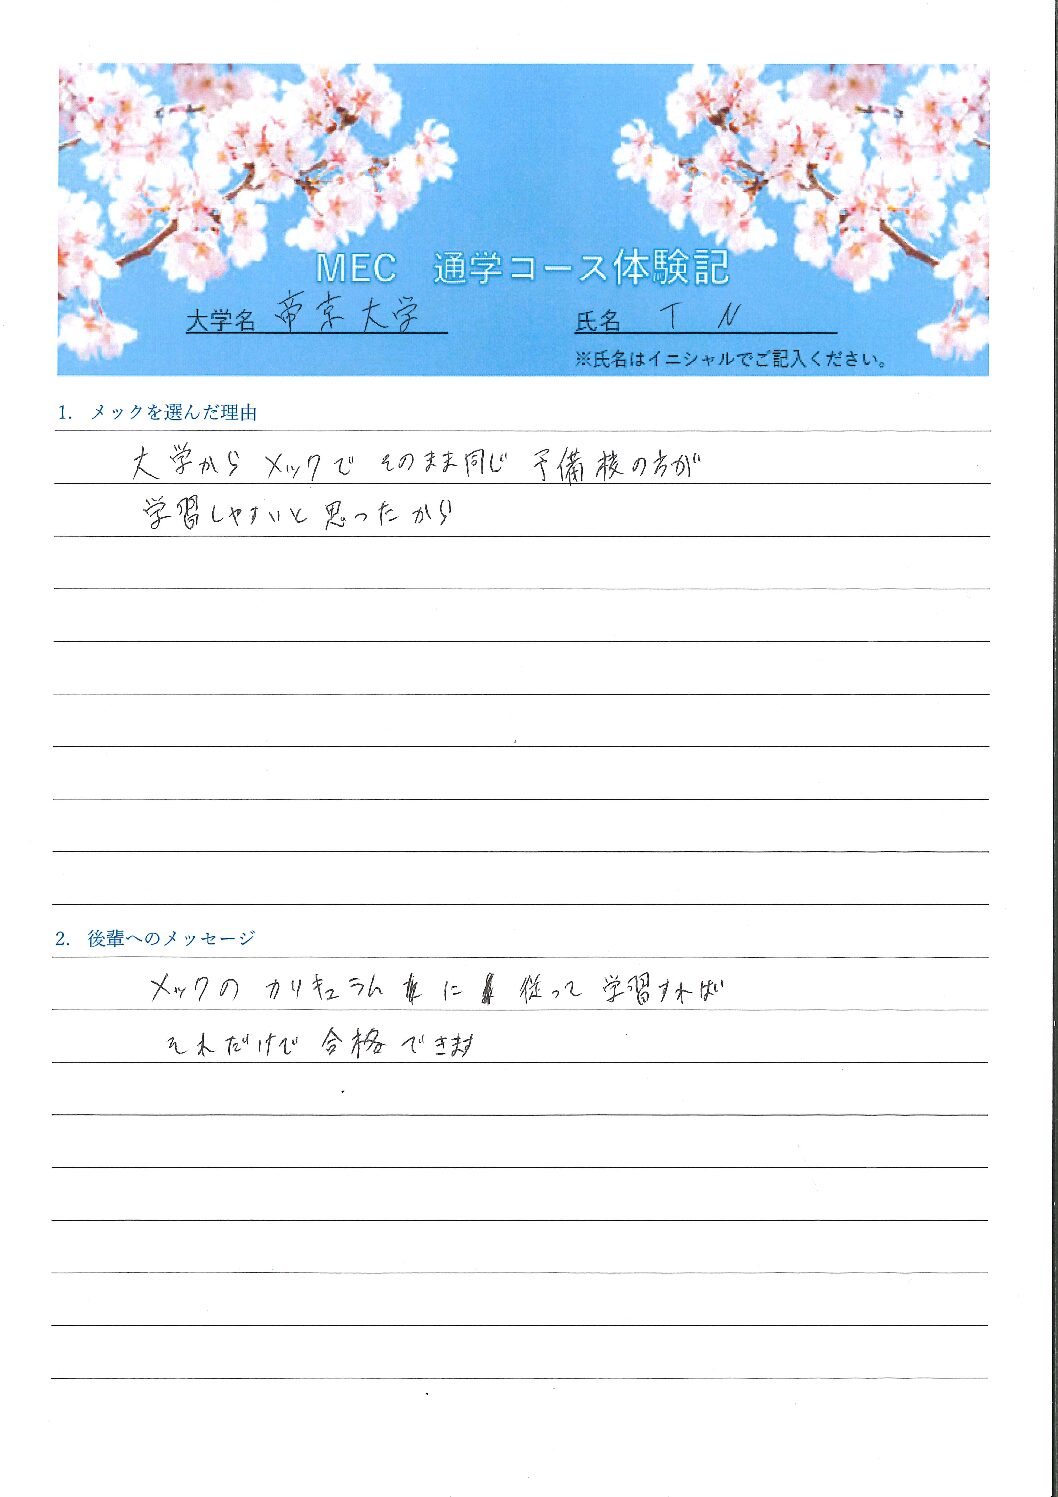 MEC 通学コース体験記
大学名 帝京大学 氏名 T N
※氏名はイニシャルでご記入ください。
1. メックを選んだ理由
大学からメックで そのまま同じ 予備校の方が
学習しやすいと思ったから
2. 後輩へのメッセージ
メックの カリキュラム に 従って 学習すれば
それだけで 合格できます